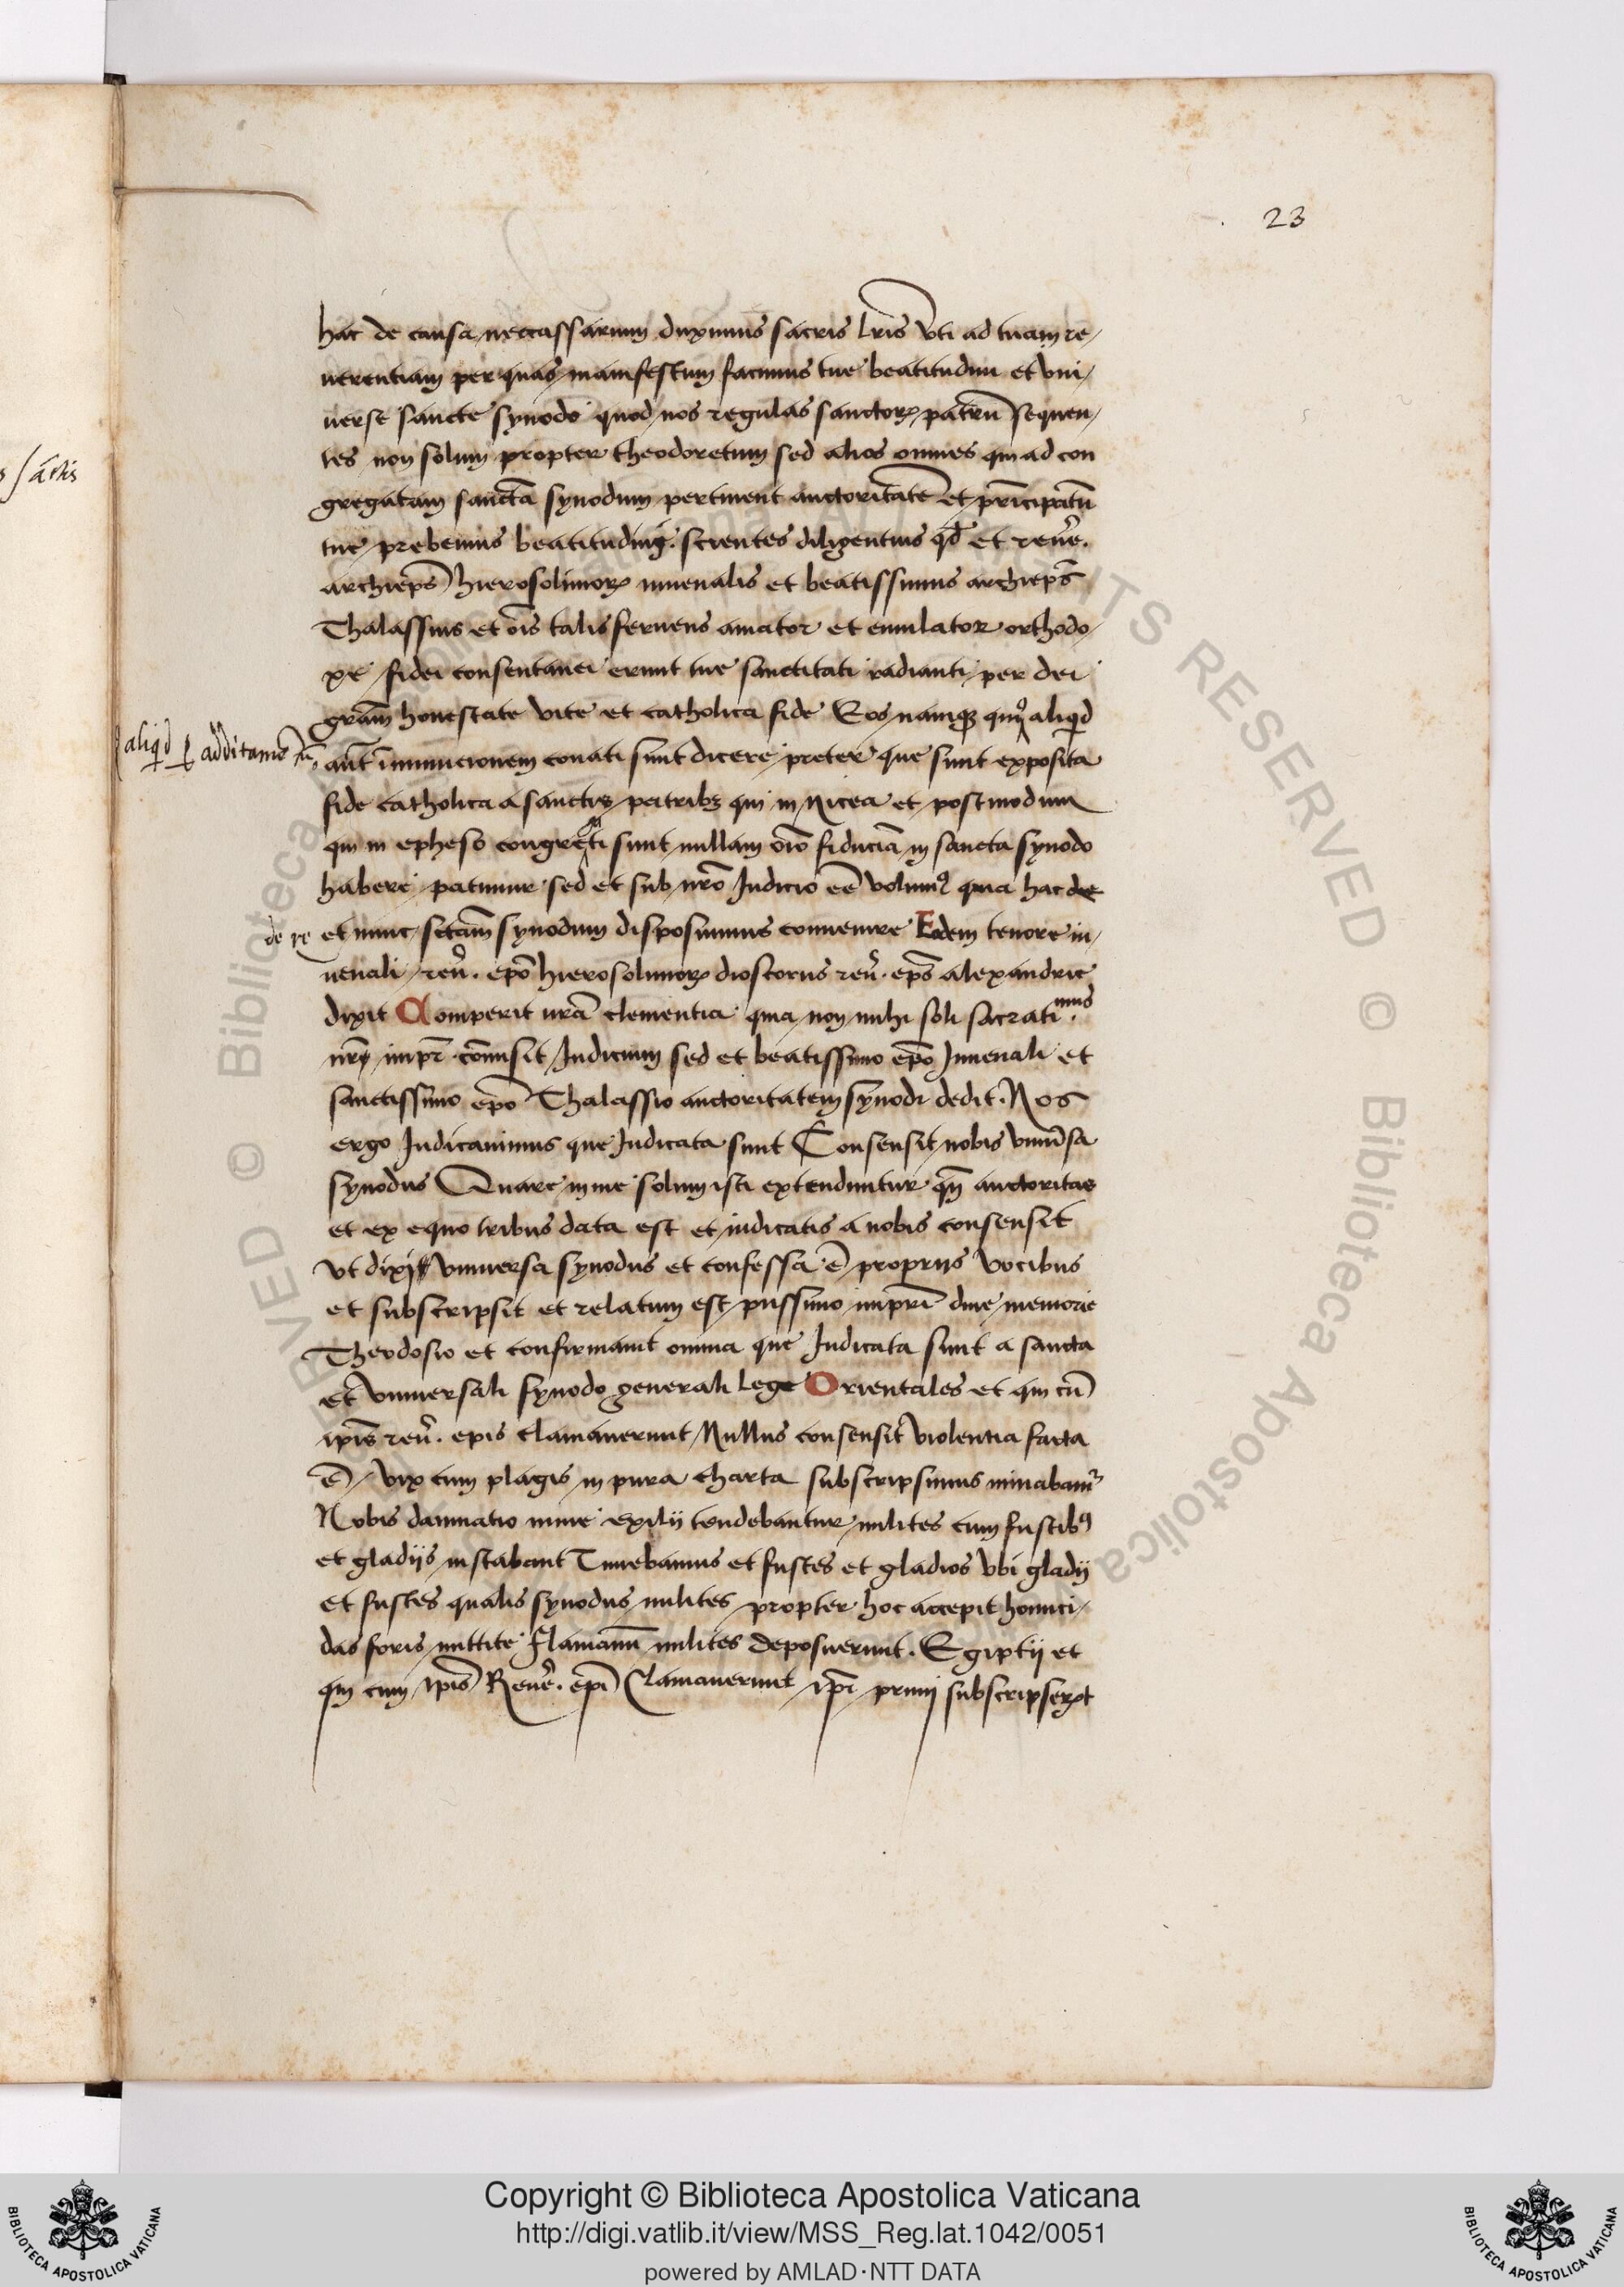 23
hac de causa neccassarium duximus sacris lr̃is vti ad tuam re/
uerentiam per quas manifestum facimus tue beatitudini et vni/
uerse sancte synodo quod nos regulas sanctoꝝ patrũ sequen/
tes non solum propter theodoretum sed alios omnes qui ad con
gregatam sanctã synodum pertinent auctoritatẽ et prĩcipatũ
tue prebemus beatitudinis. scientes diligentius qđ et reũe.
archiepũs hierosolimoꝝ iuuenalis et beatissimus archiepũs
Thalassius et oĩs talis feruens amator et emulator orthodo/
xe fidei consentanei erunt tue sanctitati radianti per dei
gratiã honestate vite et catholica fide Eos namqꝫ qui aliqd
aliqd ꝑ additamẽtũ
aut imminucionem conati sunt dicere preter que sunt exposita
fide catholica a sanctis patribꝫ qui in nicea et postmodum
qui in epheso congregati sunt nullam oĩo fiduciã in sancta synodo
habere patimur sed et sub nr̃o Iudicio eẽ volumꝰ quia hac de
de re
et nunc sctam synodum disposuimus conuenire Eodem tenore iu/
uenali reũ. epõ hierosolimoꝝ dioscorus reũ. epũs alexandrie
dixit Comperit ur̃a clementia quia non mihi soli sacrati.mus
nr̃ impr̃ cõmisit Iudicium sed et beatissimo epõ Iuuenali et
sanctissimo epõ Thalassio auctoritatem synodi dedit. Nos
ergo Iudicauimus que Iudicata sunt Consensit nobis vniũsa
synodus Quare in me solum isti extenduntur qñ auctoritas
et ex equo tribus data est et iudicatis a nobis consensit
vt dixi vniuersa synodus et confessa ẽ proprijs vocibus
et subscripsit et relatum est pijssimo impri diue memorie
Theodosio et confirmauit omnia que Iudicata sunt a sancta
et vniuersali synodo generali lege Orientales et qui cũ
ipis reũ. epis clamauerunt Nullus consensit violentia facta
ẽ vix cum plagis in pura charta subscripsimus minabamr̃
Nobis damnatio mine exilij tendebantur milites cum fustibꝰ
et gladijs instabant Timebamus et fustes et gladios vbi gladij
et fustes qualis synodus milites propter hoc accepit homici/
das foris mittite flamanũ milites deposuerunt. Egiptij et
qui cum ipis Reũe. epi Clamauerunt ipi primi subscripserũt
Copyright © Biblioteca Apostolica Vaticana
http://digi.vatlib.it/view/MSS_Reg.lat.1042/0051
powered by AMLAD·NTT DATA